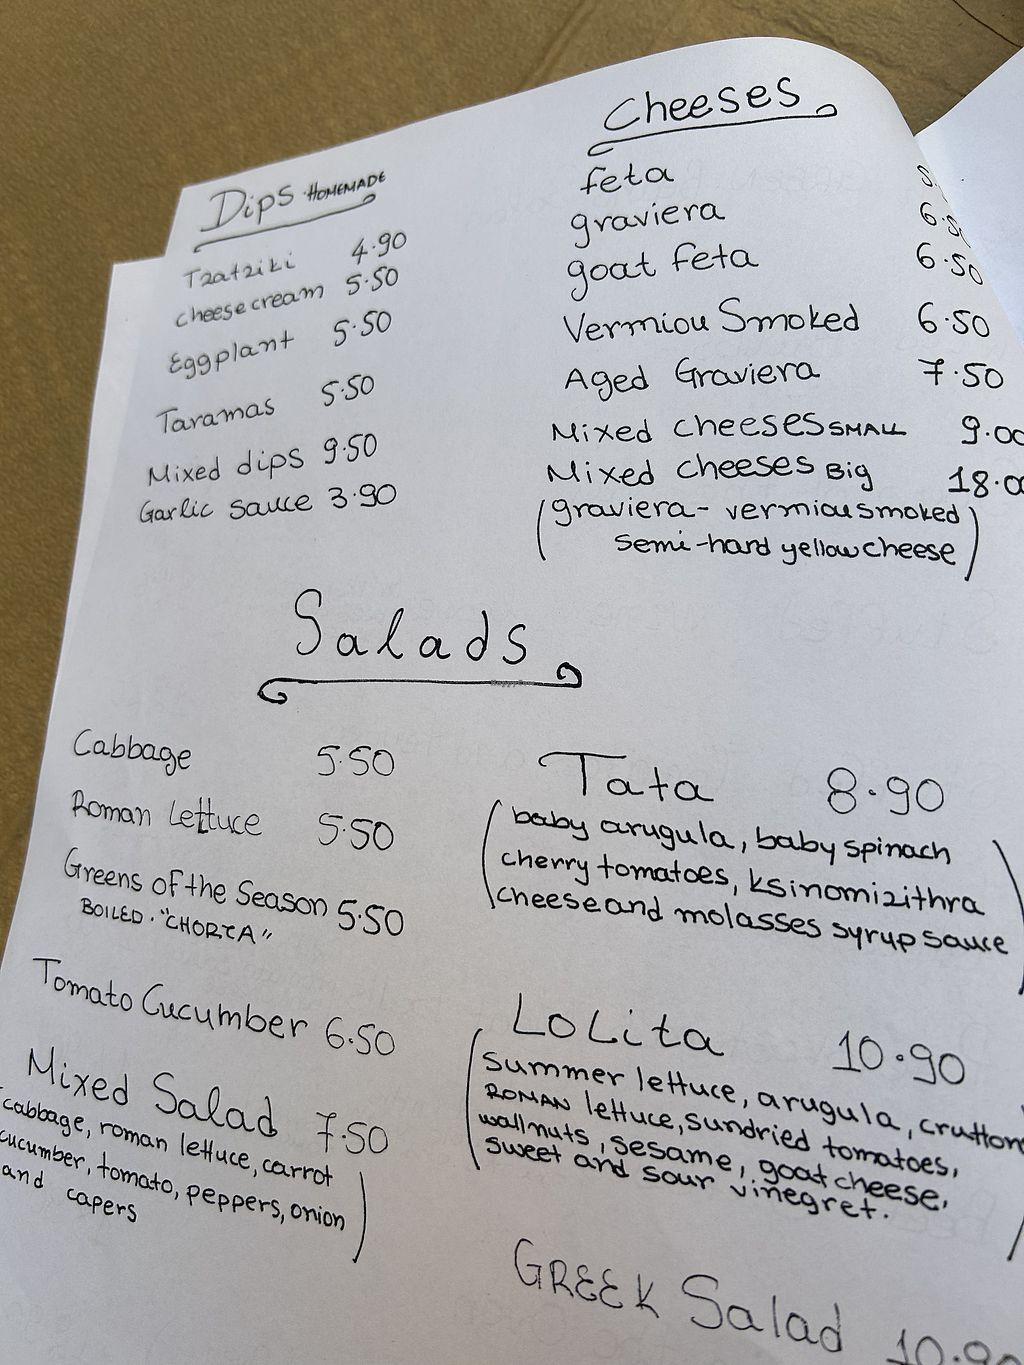 Dips HOMEMADE
Tzatziki 4.90
cheese cream 5.50
Eggplant 5.50
Taramas 5.50
Mixed dips 9.50
Garlic sauce 3.90
Cheeses
feta
graviera 6.50
goat feta 6.50
Vermiou Smoked 6.50
Aged Graviera 7.50
Mixed cheeses SMALL 9.00
Mixed cheeses Big 18.00
(graviera - vermiou smoked
semi-hard yellow cheese)
Salads
Cabbage 5.50
Roman Lettuce 5.50
Greens of the Season 5.50
BOILED. "CHORTA"
Tomato Cucumber 6.50
Mixed Salad 7.50
cabbage, roman lettuce, carrot
cucumber, tomato, peppers, onion
and capers)
Tata 8.90
(baby arugula, baby spinach
cherry tomatoes, ksinomizithra
cheese and molasses syrup sauce)
LoLita 10.90
(summer lettuce, arugula, crutton
ROMAN lettuce, sundried tomatoes,
wallnuts, sesame, goat cheese,
sweet and sour vinegret.
GREEK Salad 10.90